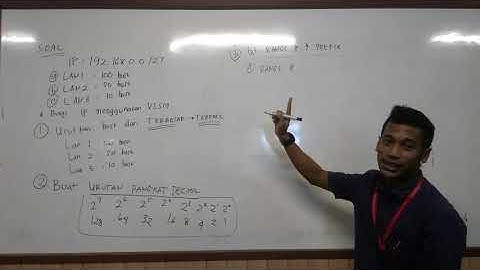 SOAL
IP : 192.168.0.0/27
a LAN 1 : 100 host
b LAN 2 : 50 host
c LAN 3 : 10 host
Bagi IP menggunakan VLSM
1 Urutkan host dari TERBESAR → TERKECIL
Lan 1 : 100 host
Lan 2 : 50 host
Lan 3 : 10 host
2 Buat URUTAN PANGKAT DECIMAL
2⁷ 2⁶ 2⁵ 2⁴ 2³ 2² 2¹ 2⁰
128 64 32 16 8 4 2 1
3 RANGE IP & PREFIX
RANGE IP